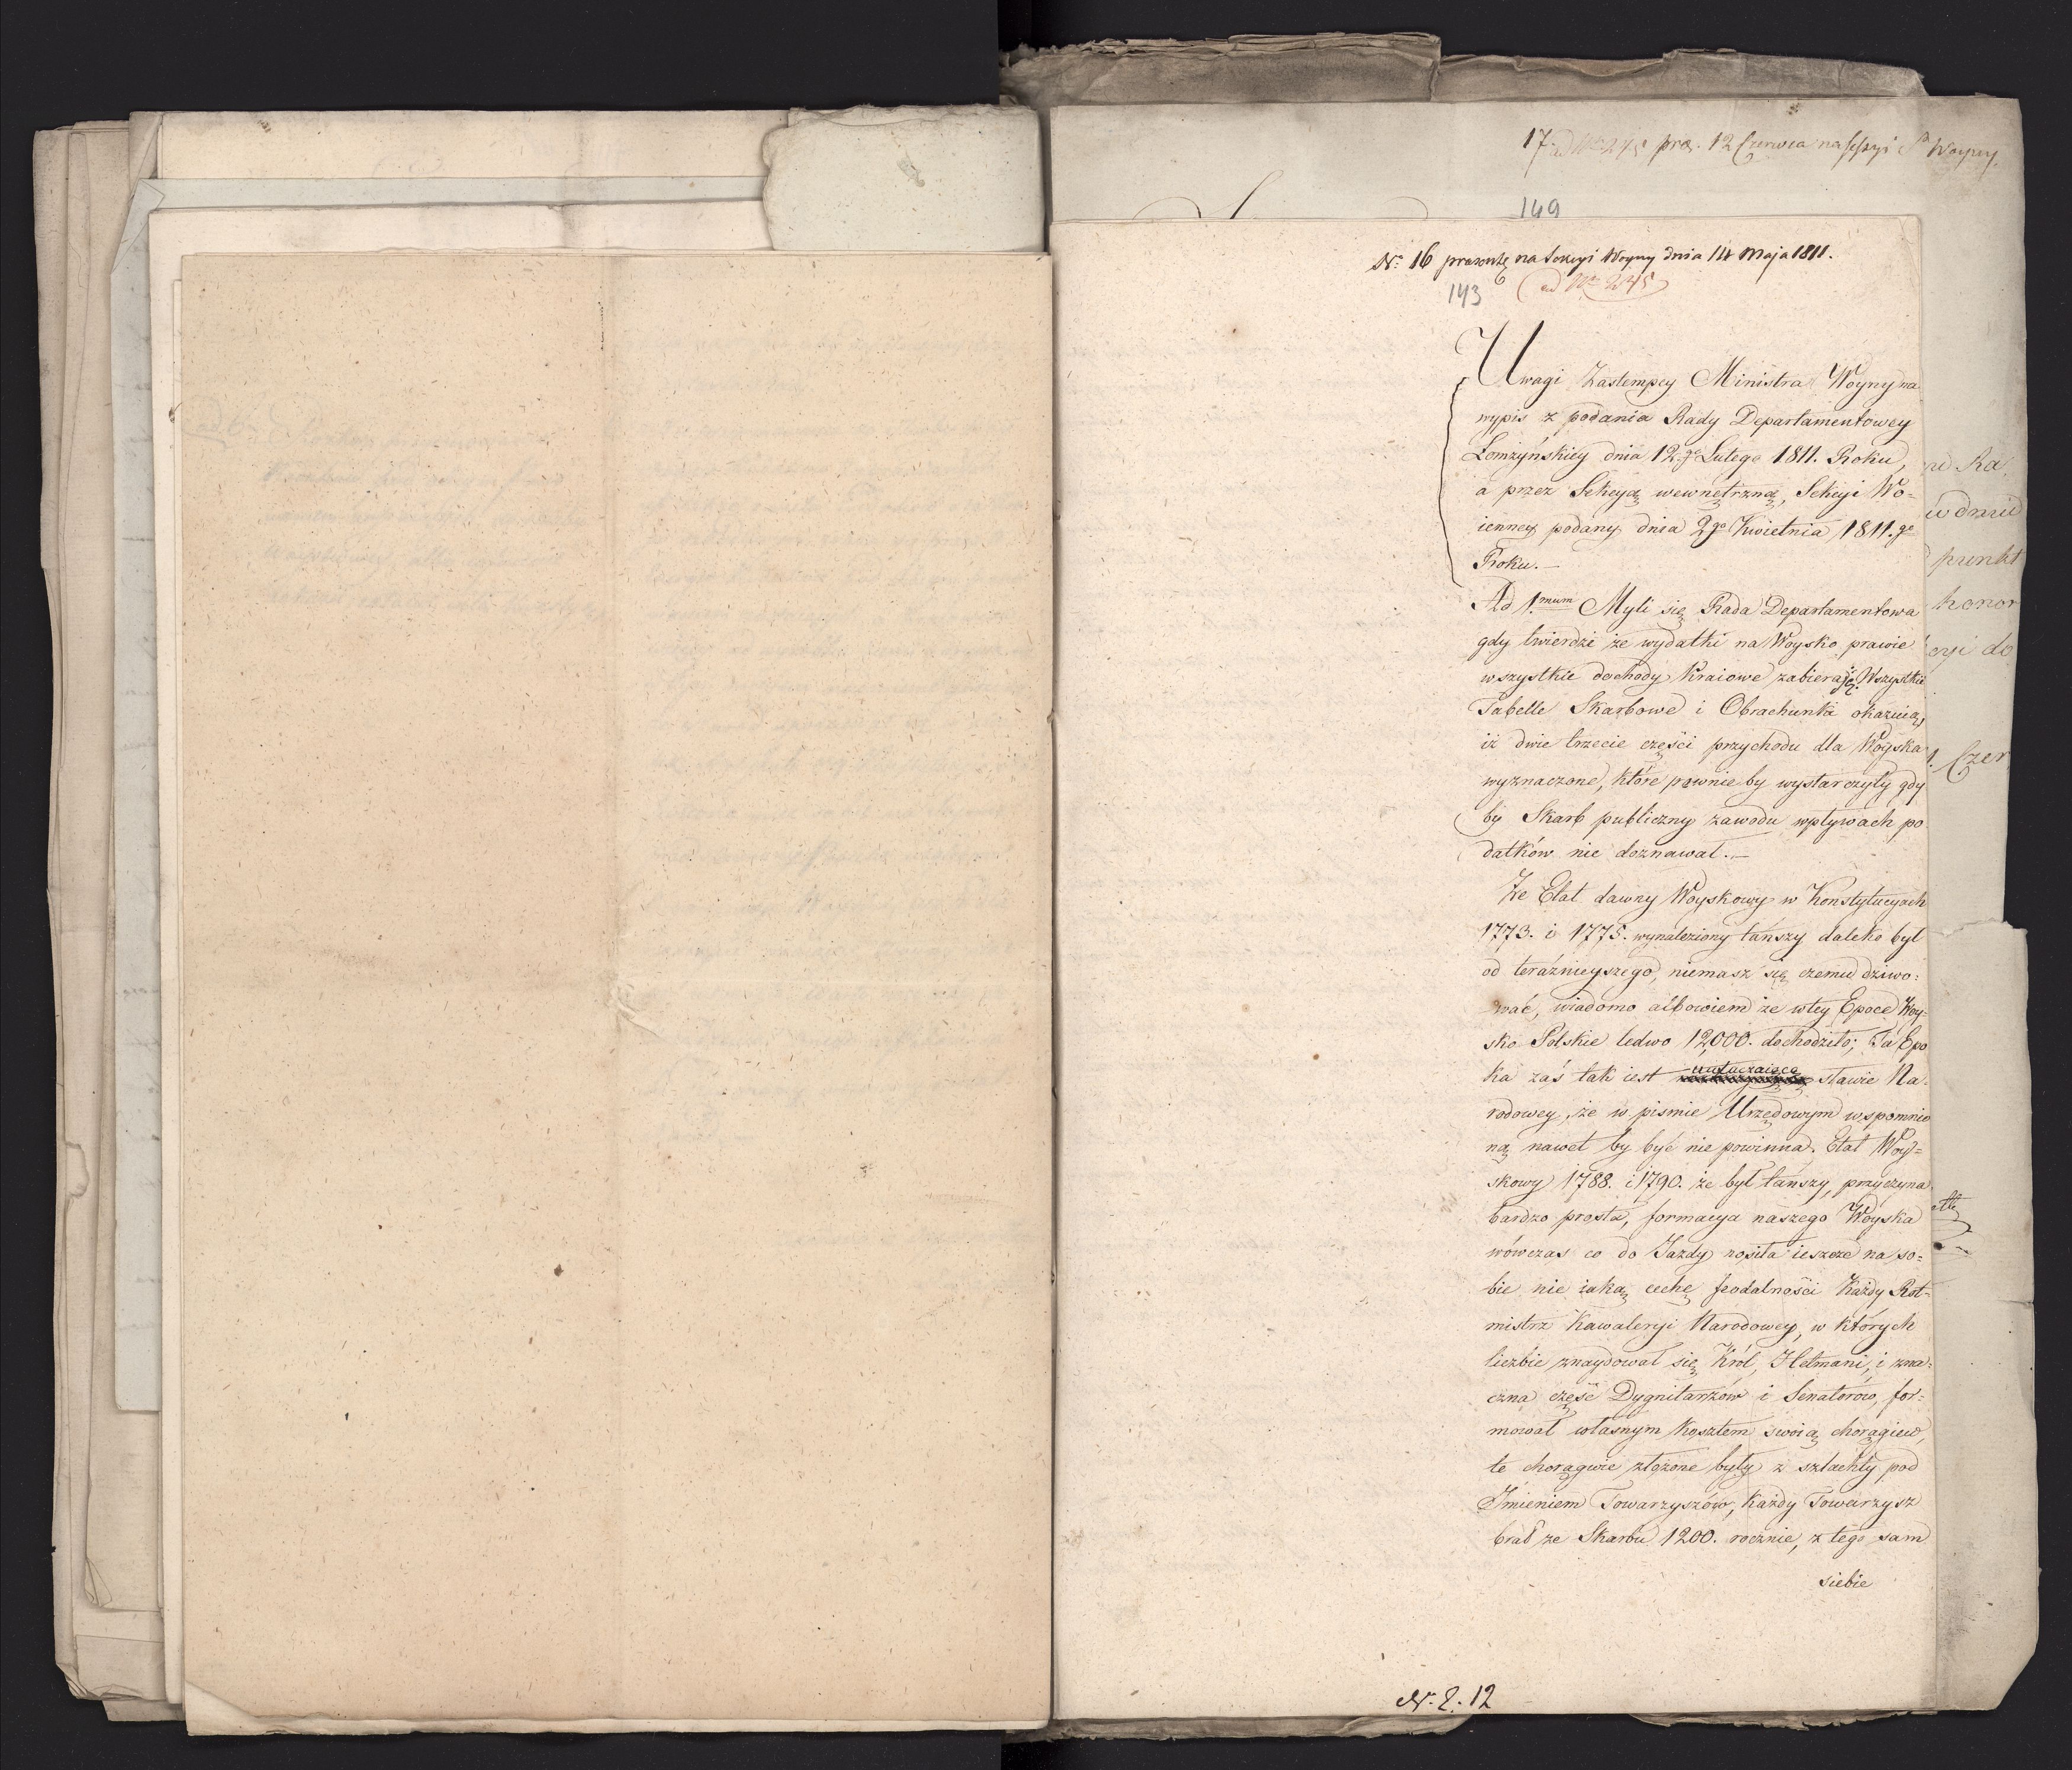 17. ad Nr 245 prez. 12 Czerwca na sessyi Woyny.
149
Nr: 16 prezentę na Sekcyi Woyny dnia 14 Maja 1811.
143 (ad Nr 245)
Uwagi Zastempcy Ministra Woyny na
wypis z podania Rady Departamentowey
Łomżyńskiey dnia 12.go Lutego 1811. Roku,
a przez Sekcyą wewnętrzną, Sekcyi Wo=
ienney podany dnia 2go Kwietnia 1811.go
Roku.—
Ad 1.mum Myli się Rada Departamentowa
gdy twierdzi że wydatki na Woysko prawie
wszystkie dochody Kraiowe zabieraję. Wszystkie
Tabelle Skarbowe i Obrachunki okazuią,
iż dwie trzecie części przychodu dla Woyska
wyznaczone, które pewnie by wystarczyły gdy
by Skarb publiczny zawodu wpływach po
datków nie doznawał.—
Że Etat dawny Woyskowy w Konstytucyach
1773. i 1775. wynaleziony tańszy daleko był
od teraźnieyszego, niemasz się czemu dziwo=
wać, wiadomo albowiem że wtey Epoce Woy=
sko Polskie ledwo 12,000. dochodziło; Ta Epo
ka zaś tak iest uwłaczaiącą sławie Na=
rodowey, że w pismie Urzędowym wspomnio
ną nawet by być nie powinna. Etat Woy=
skowy 1788. i 1790. że był tańszy, przyczyna
bardzo prosta, formacya naszego Woyska
wówczas co do Jazdy nosiła ieszcze na so=
bie nie iaką cechę feodalności Każdy Rot=
mistrz Kawaleryi Narodowey, w których
liczbie znaydował się Król, Hetmani, i zna=
czna część Dygnitarzów i Senatorów, for=
mował własnym kosztem swoią chorągiew,
te chorągwie złożone były z szlachty pod
Jmieniem Towarzyszów, każdy Towarzysz
brał ze Skarbu 1200. rocznie, z tego sam
siebie
N. 2. 12
punkt
honor
cyi do
Czer